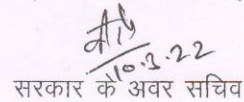 10.3.22
सरकार के अवर सचिव